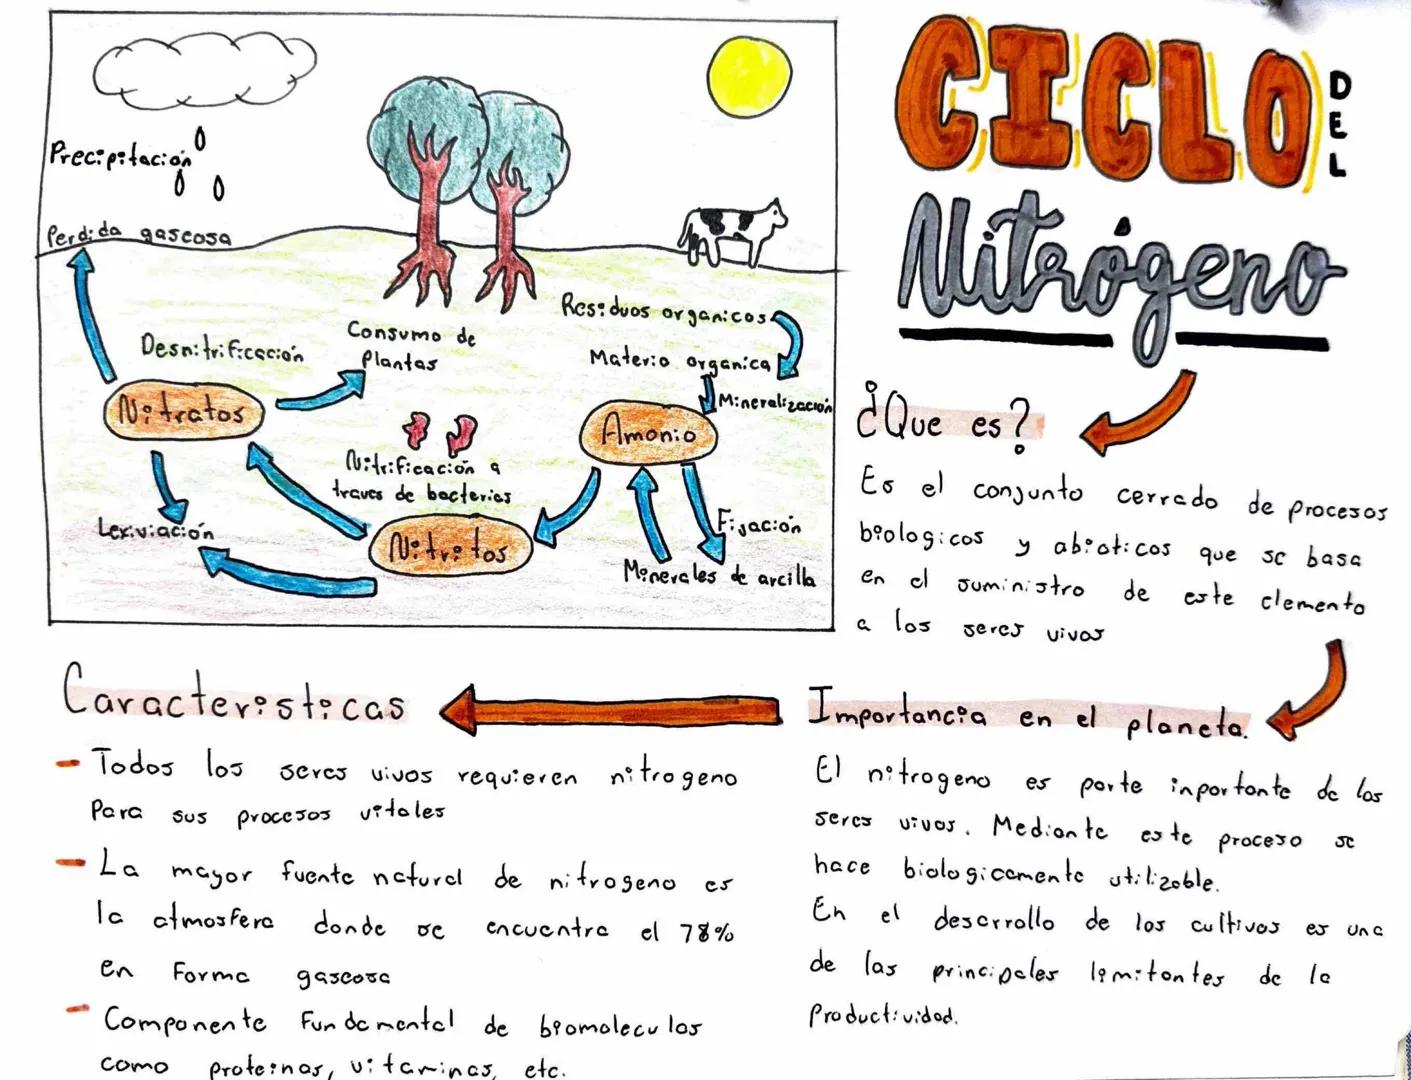 CICLO
DEL
Nitrógeno
Precipitación
Perdida gaseosa
Desnitrificación
Consumo de
Plantas
Residuos organicos
Materia organica
Mineralización
Nitratos
Amonio
Nitrificación a
traves de bacterias
Nitritos
Lexiviación
Fijación
Minerales de arcilla
¿Que es?
Es el conjunto cerrado de procesos
biologicos y abioticos que se basa
en el suministro de este elemento
a los seres vivos
Importancia en el planeta.
El nitrogeno es parte inportante de los
seres vivos. Mediante este proceso se
hace biologicamente utilizable.
En el desarrollo de los cultivos es una
de las principales limitantes de la
Productividad.
Caracteristicas
- Todos los seres vivos requieren nitrogeno
Para sus procesos vitales
- La mayor fuente natural de nitrogeno es
la atmosfera donde se encuentra el 78%
en Forma gaseosa
- Componente Fundamental de biomoleculas
como proteinas, vitaminas, etc.